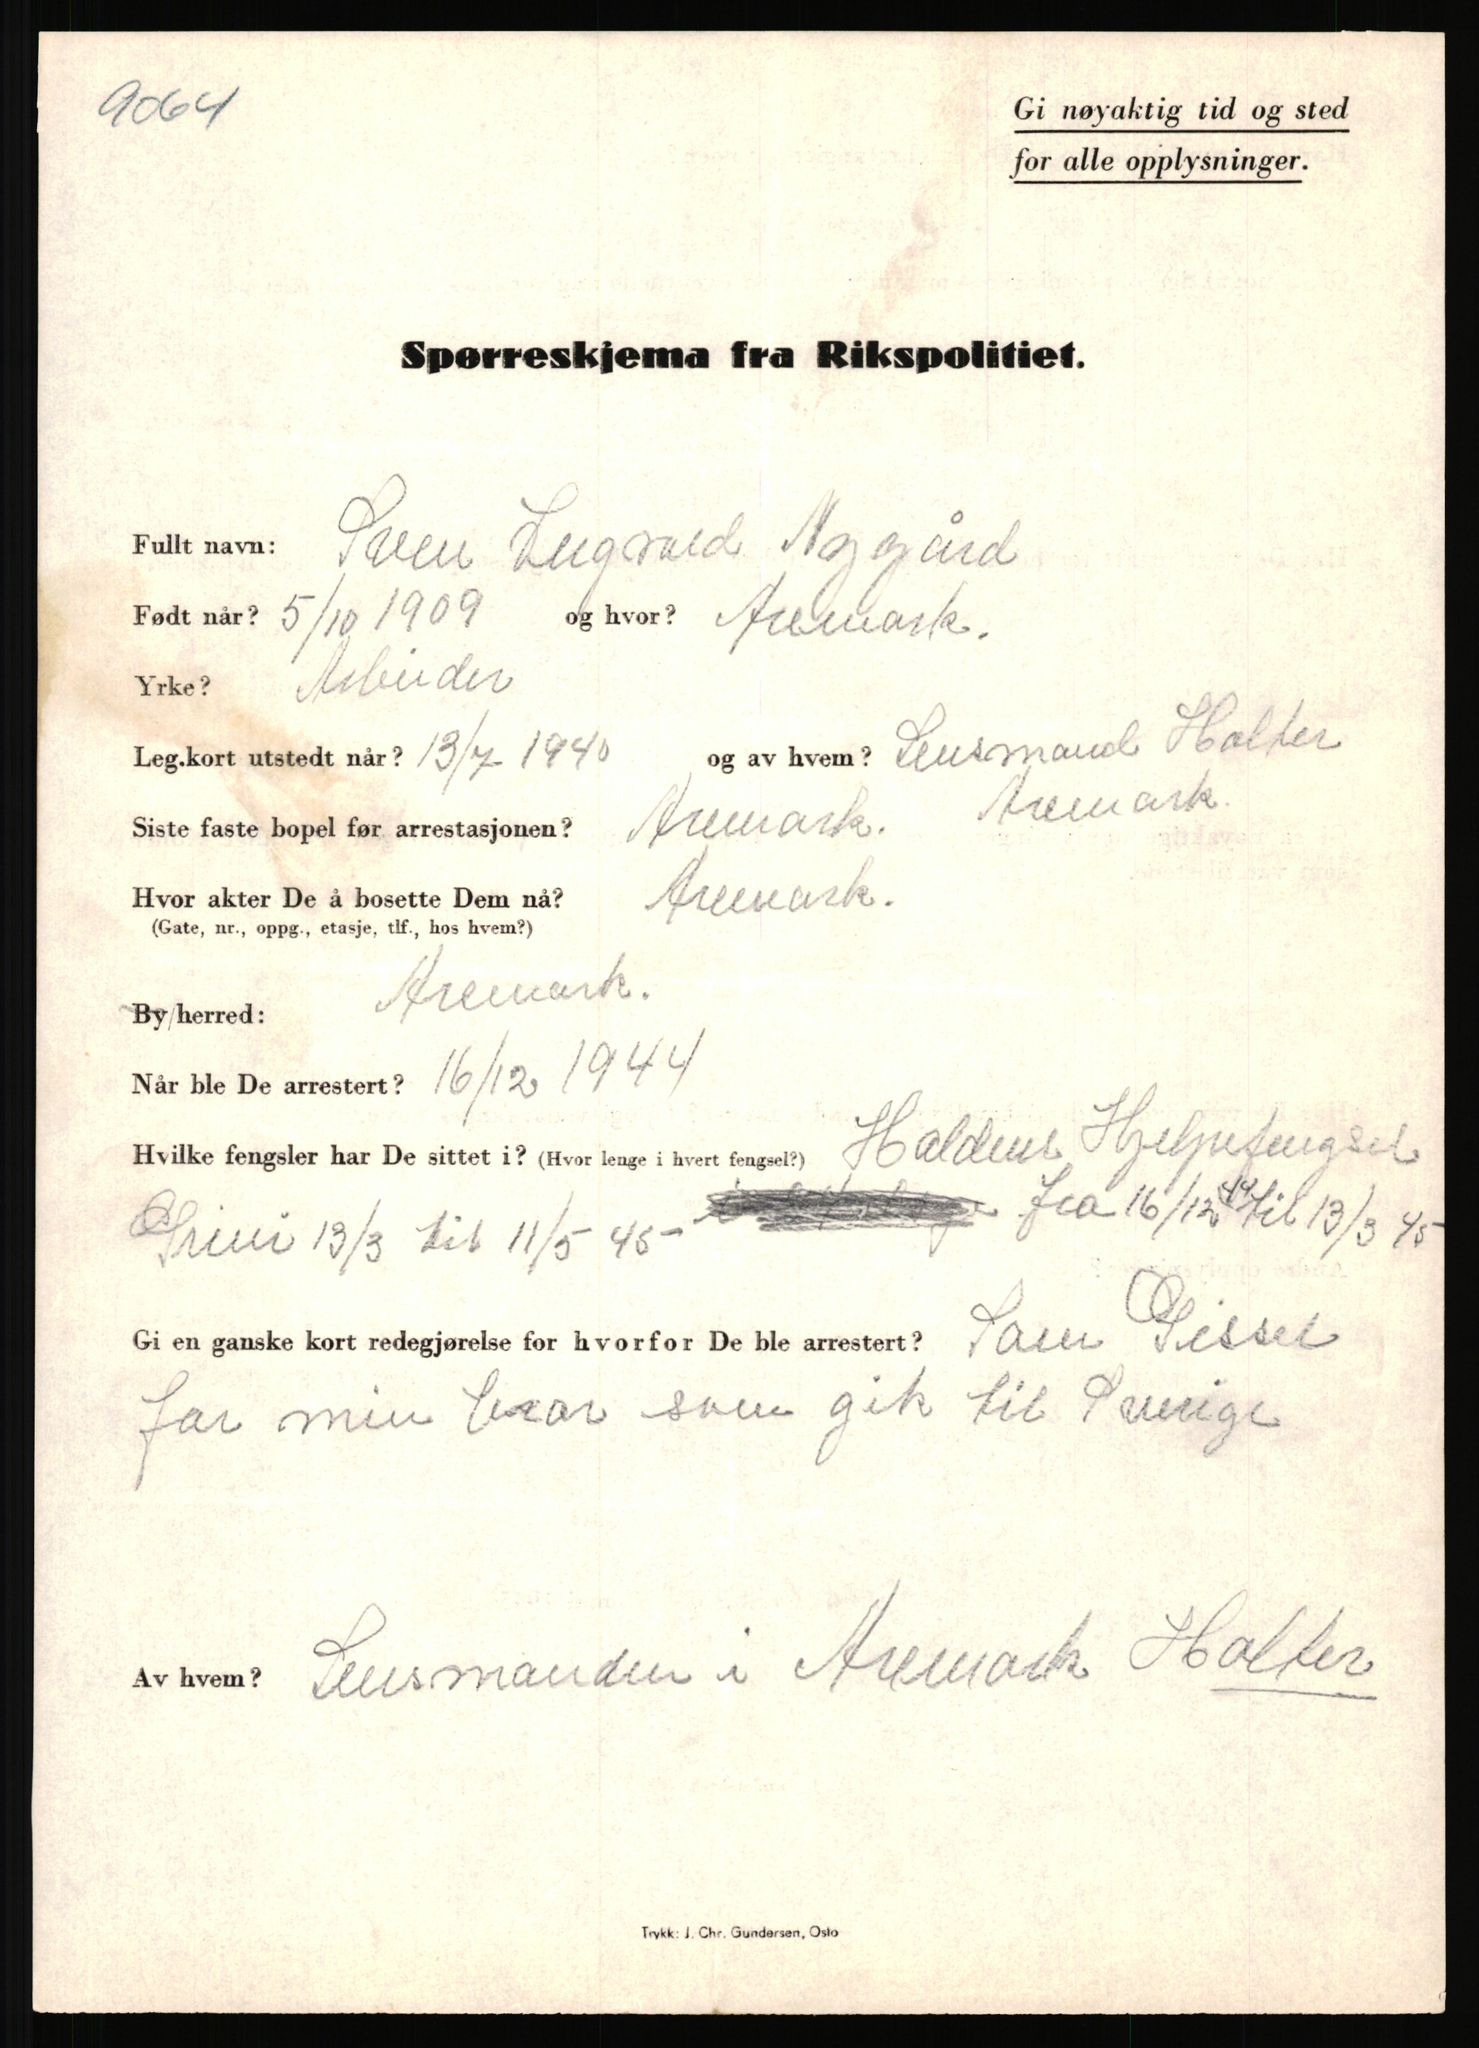 9064
Gi nøyaktig tid og sted
for alle opplysninger.
Spørreskjema fra Rikspolitiet.
Fullt navn: Sven Ingvald Nygård
Født når? 5/10 1909 og hvor? Aremark.
Yrke? Arbeider
Leg.kort utstedt når? 13/7 1940 og av hvem? Lensmand Halter
Aremark.
Siste faste bopel før arrestasjonen? Aremark.
Hvor akter De å bosette Dem nå? Aremark.
(Gate, nr., oppg., etasje, tlf., hos hvem?)
By/herred: Aremark.
Når ble De arrestert? 16/12 1944
Hvilke fengsler har De sittet i? (Hvor lenge i hvert fengsel?) Haldens Hjelpefengsel
fra 16/12 44 til 13/3 45
Grini 13/3 til 11/5 45
Gi en ganske kort redegjørelse for hvorfor De ble arrestert? Som Gissel
for min bror som gik til Sverige
Av hvem? Lensmanden i Aremark Halter
Trykk: J. Chr. Gundersen, Oslo